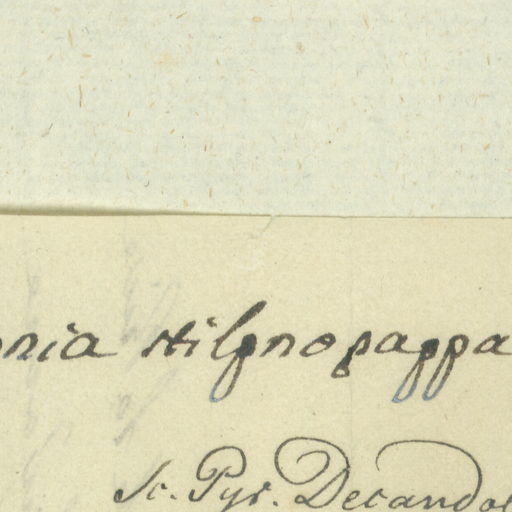 onia stilpnopappa
Sc. Pyr. Decandol